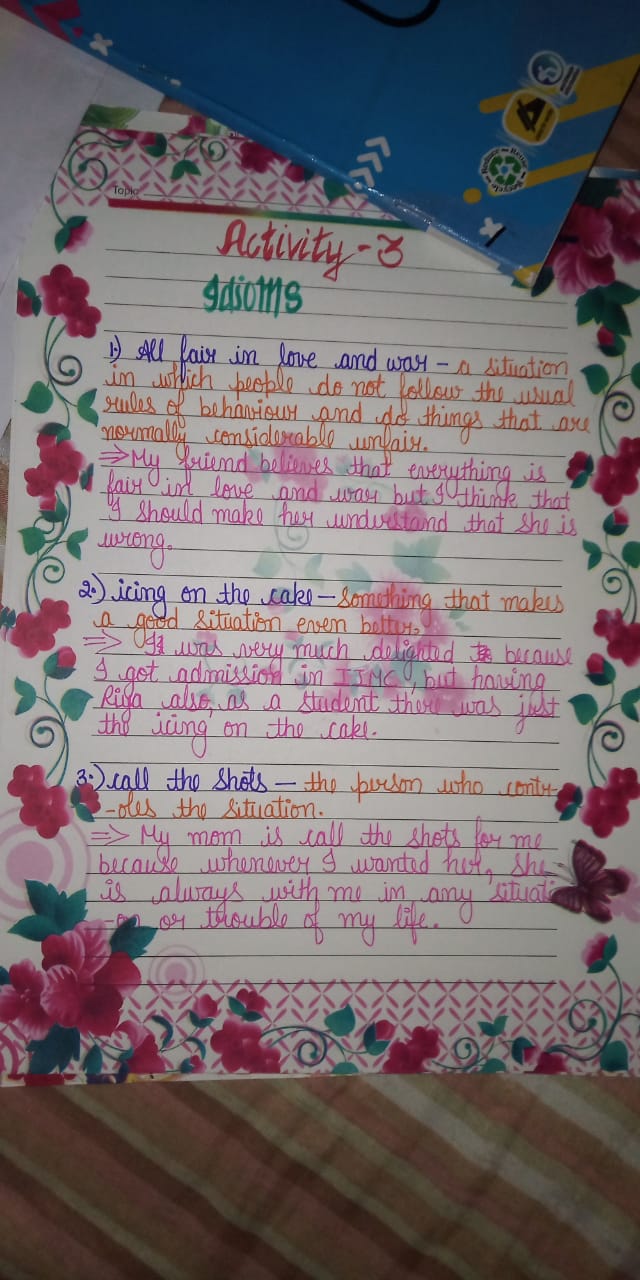 Reduce - Reuse - Recycle
Topic
Activity - 3
Idioms
1.) All fair in love and war - a situation
in which people do not follow the usual
rules of behaviour and do things that are
normally considerable unfair.
⇒ My friend believes that everything is
fair in love and war but I think that
I should make her understand that she is
wrong.
2.) icing on the cake - Something that makes
a good situation even better.
⇒ It was very much delighted because
I got admission in IIMC, but having
Riya also, as a student there was just
the icing on the cake.
3.) call the shots - the person who contr-
-oles the situation.
⇒ My mom is call the shots for me
because whenever I wanted her, she
is always with me in any situati
-on or trouble of my life.